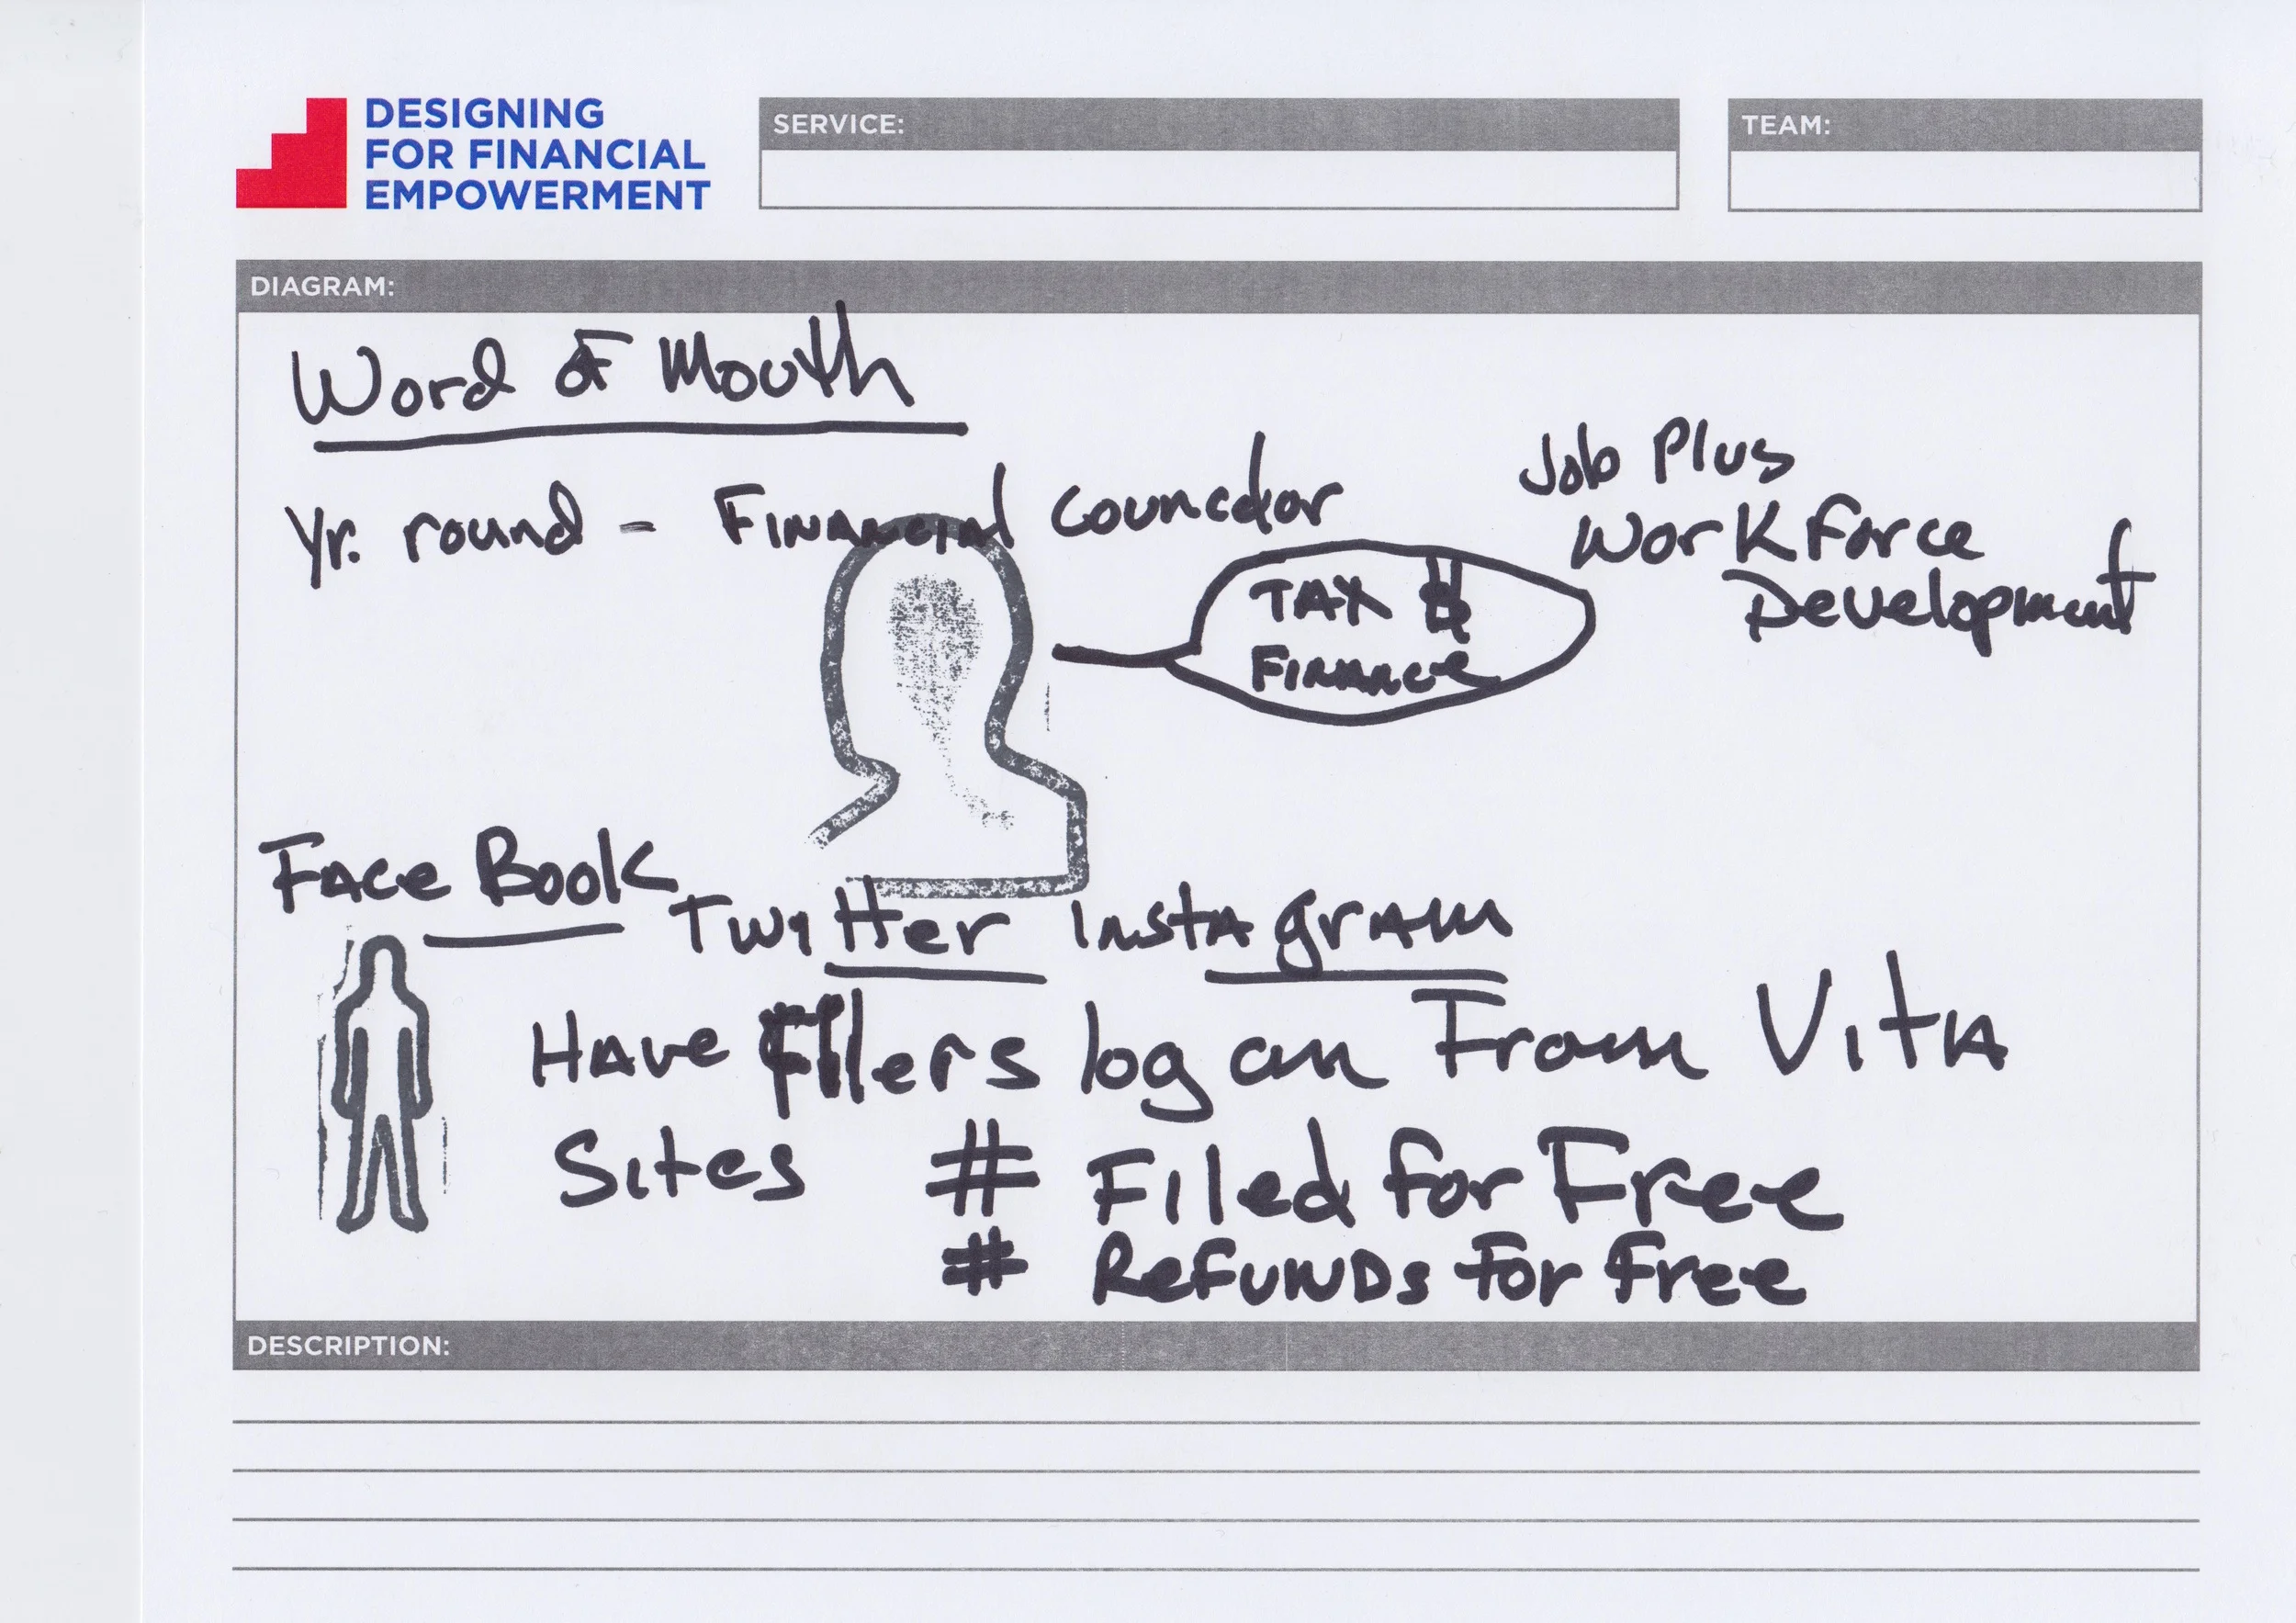 DESIGNING
FOR FINANCIAL
EMPOWERMENT
SERVICE:
TEAM:
DIAGRAM:
Word of Mouth
Yr. round - Financial Councelor
Job Plus
Workforce
Development
TAX &
Finance
Face Book
Twitter Instagram
Have Filers log on From VitA
Sites # Filed for Free
# Refunds for Free
DESCRIPTION: